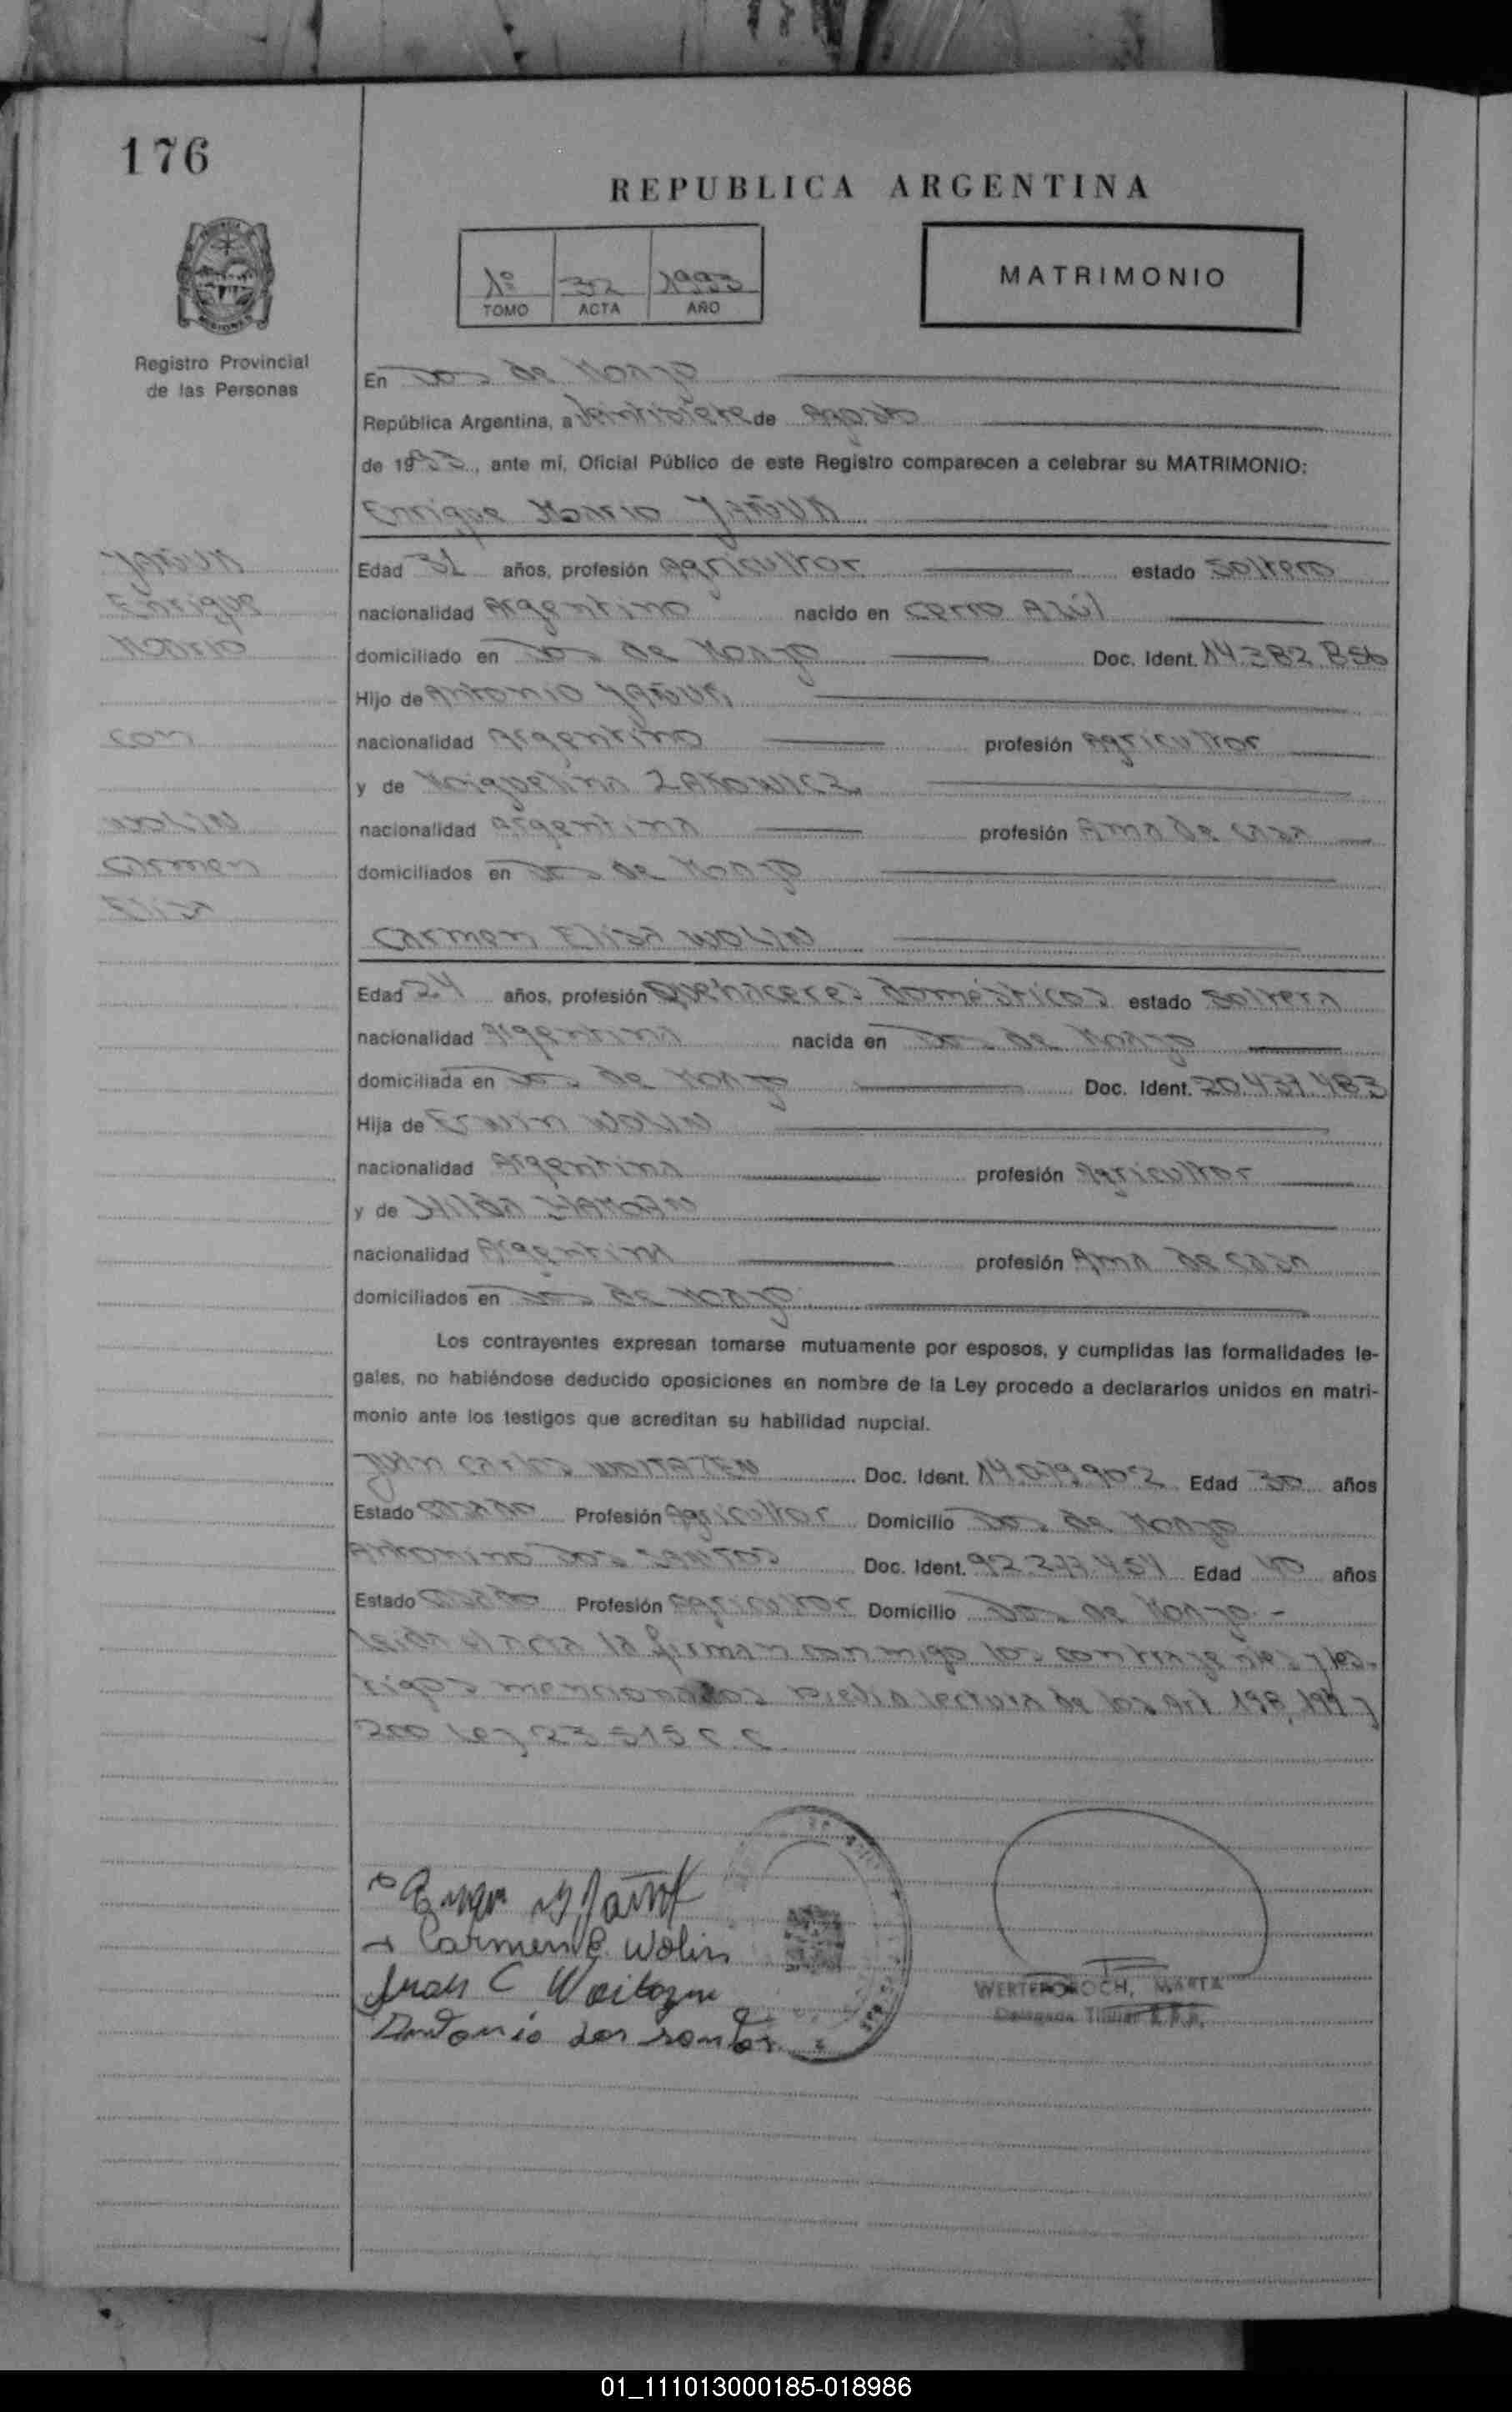 176
REPUBLICA ARGENTINA
1º 32 1993
TOMO ACTA AÑO
MATRIMONIO
Registro Provincial
de las Personas
En Dos de Mayo
República Argentina, a veintisiete de Agosto
de 1993, ante mí, Oficial Público de este Registro comparecen a celebrar su MATRIMONIO:
Enrique Mario YAÑUK
YAÑUK
Enrique
Mario
con
WOLIN
Carmen
Elisa
Edad 31 años, profesión Agricultor estado Soltero
nacionalidad Argentino nacido en Cerro Azúl
domiciliado en Dos de Mayo Doc. Ident. 14.382.856
Hijo de Antonio YAÑUK
nacionalidad Argentino profesión Agricultor
y de
nacionalidad Argentina profesión Ama de casa
domiciliados en Dos de Mayo
Carmen Elisa WOLIN
Edad 24 años, profesión Quehaceres domésticos estado Soltera
nacionalidad Argentina nacida en Dos de Mayo
domiciliada en Dos de Mayo Doc. Ident. 20.437.483
Hija de Erwin WOLIN
nacionalidad Argentina profesión Agricultor
y de Hilda
nacionalidad Argentina profesión Ama de casa
domiciliados en Dos de Mayo
Los contrayentes expresan tomarse mutuamente por esposos, y cumplidas las formalidades le-
gales, no habiéndose deducido oposiciones en nombre de la Ley procedo a declararlos unidos en matri-
monio ante los testigos que acreditan su habilidad nupcial.
Juan Carlos Doc. Ident. Edad 30 años
Estado casado Profesión Agricultor Domicilio Dos de Mayo
Antonino DOS SANTOS Doc. Ident. Edad 40 años
Estado casado Profesión Agricultor Domicilio Dos de Mayo -
leída el acta la firman conmigo los contrayentes y tes-
tigos mencionados previa lectura de los Art. 198, 199 y
200 Ley 23.515 C.C.
Carmen E. Wolin
Juan C
Antonio dos santos
WERTEROROCH, MARTA
Delegada Titular R.P.P.
01_111013000185-018986